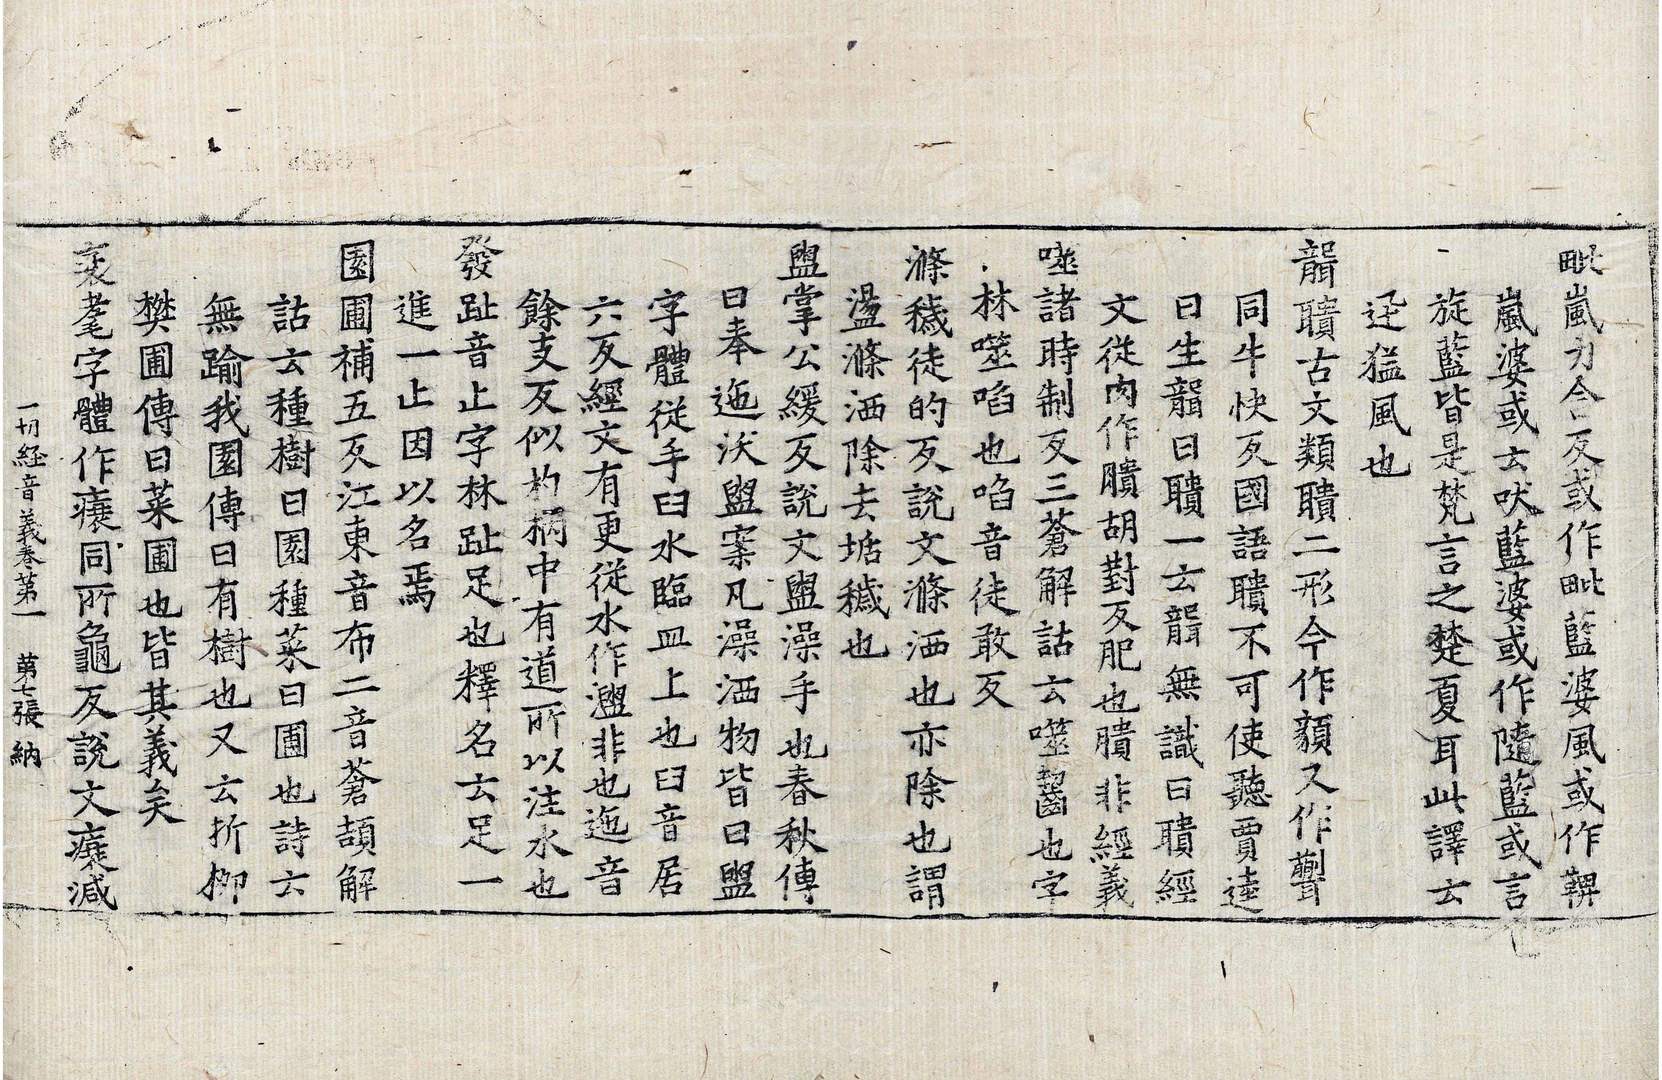 毗嵐力含反或作毗藍婆風或作鞞
嵐婆或云吠藍婆或作隨藍或言
旋藍皆是梵言之楚夏耳此譯云
迅猛風也
聾聵古文頪聵二形今作顡又作𦗳
同牛快反國語聵不可使聽賈逵
曰生聾曰聵一云聾無識曰聵經
文從肉作膭胡對反肥也膭非經義
噬諸時制反三蒼解詁云噬齧也字
林噬啗也啗音徒敢反
滌穢徒的反說文滌洒也亦除也謂
盪滌洒除去垢穢也
盥掌公緩反說文盥澡手也春秋傳
曰奉迤沃盥案凡澡洒物皆曰盥
字體從手臼水臨皿上也臼音居
六反經文有更從水作灥非也迤音
餘支反似杓柄中有道所以注水也
發趾音止字林趾足也釋名云足一
進一止因以名焉
園圃補五反江東音布二音蒼頡解
詁云種樹曰園種菜曰圃也詩云
無踰我園傳曰有樹也又云折柳
樊圃傳曰菜圃也皆其義矣
衰耄字體作㾢同所龜反說文㾢減
一切經音義卷第一　第七張　納